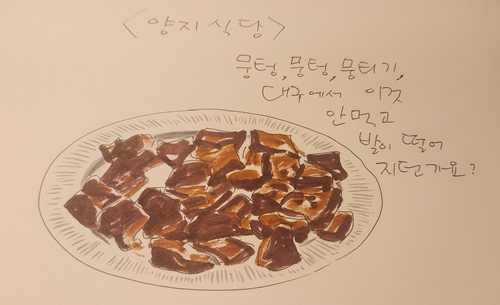 <양지식당>
뭉텅, 뭉텅, 뭉티기,
대구에서 이것
안먹고
발이 떨어
지던가요?